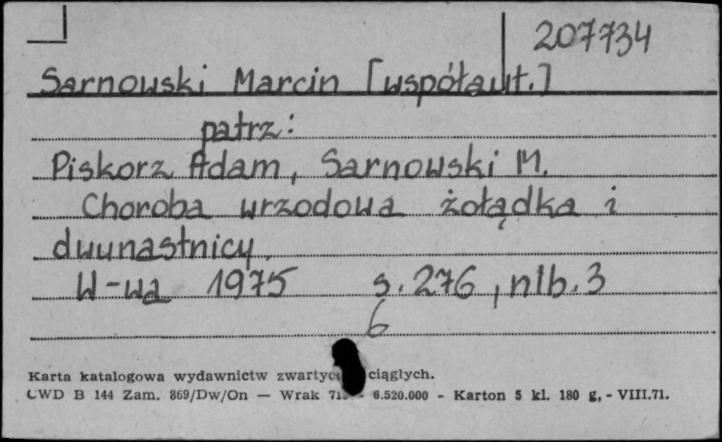 207734
Sarnowski Marcin [współaut.]
patrz:
Piskorz Adam, Sarnowski M.
Choroba wrzodowa żołądka i
dwunastnicy.
W-wa 1975 s. 276, nlb. 3
6
Karta katalogowa wydawnictw ciągłych.
CWD B 144 Zam. 869/Dw/On — Wrak 6.520.000 - Karton 5 kl. 180 g, - VIII.71.